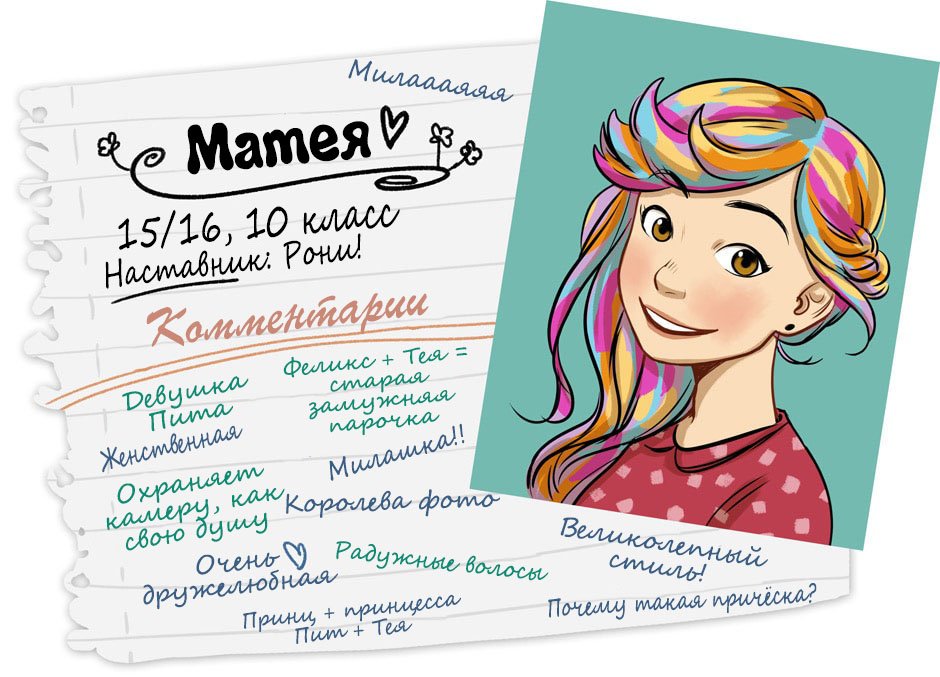 Милаааяяя
Матея
15/16, 10 класс
Наставник: Рони!
Комментарии
Девушка
Пита
Феликс + Тея =
старая
замужняя
парочка
Женственная
Милашка!!
Охраняет
камеру, как
свою душу
Королева фото
Очень
дружелюбная
Радужные волосы
Великолепный
стиль!
Принц + принцесса
Пит + Тея
Почему такая причёска?